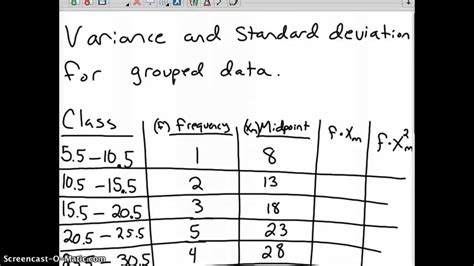 Variance and Standard deviation
for grouped data.
Class (f) Frequency (Xm) Midpoint f·Xm f·Xm²
5.5-10.5 1 8
10.5-15.5 2 13
15.5-20.5 3 18
20.5-25.5 5 23
25.5-30.5 4 28
Screencast-O-Matic.com